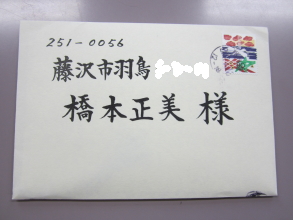 251-0056
藤沢市羽鳥
橋本正美 様